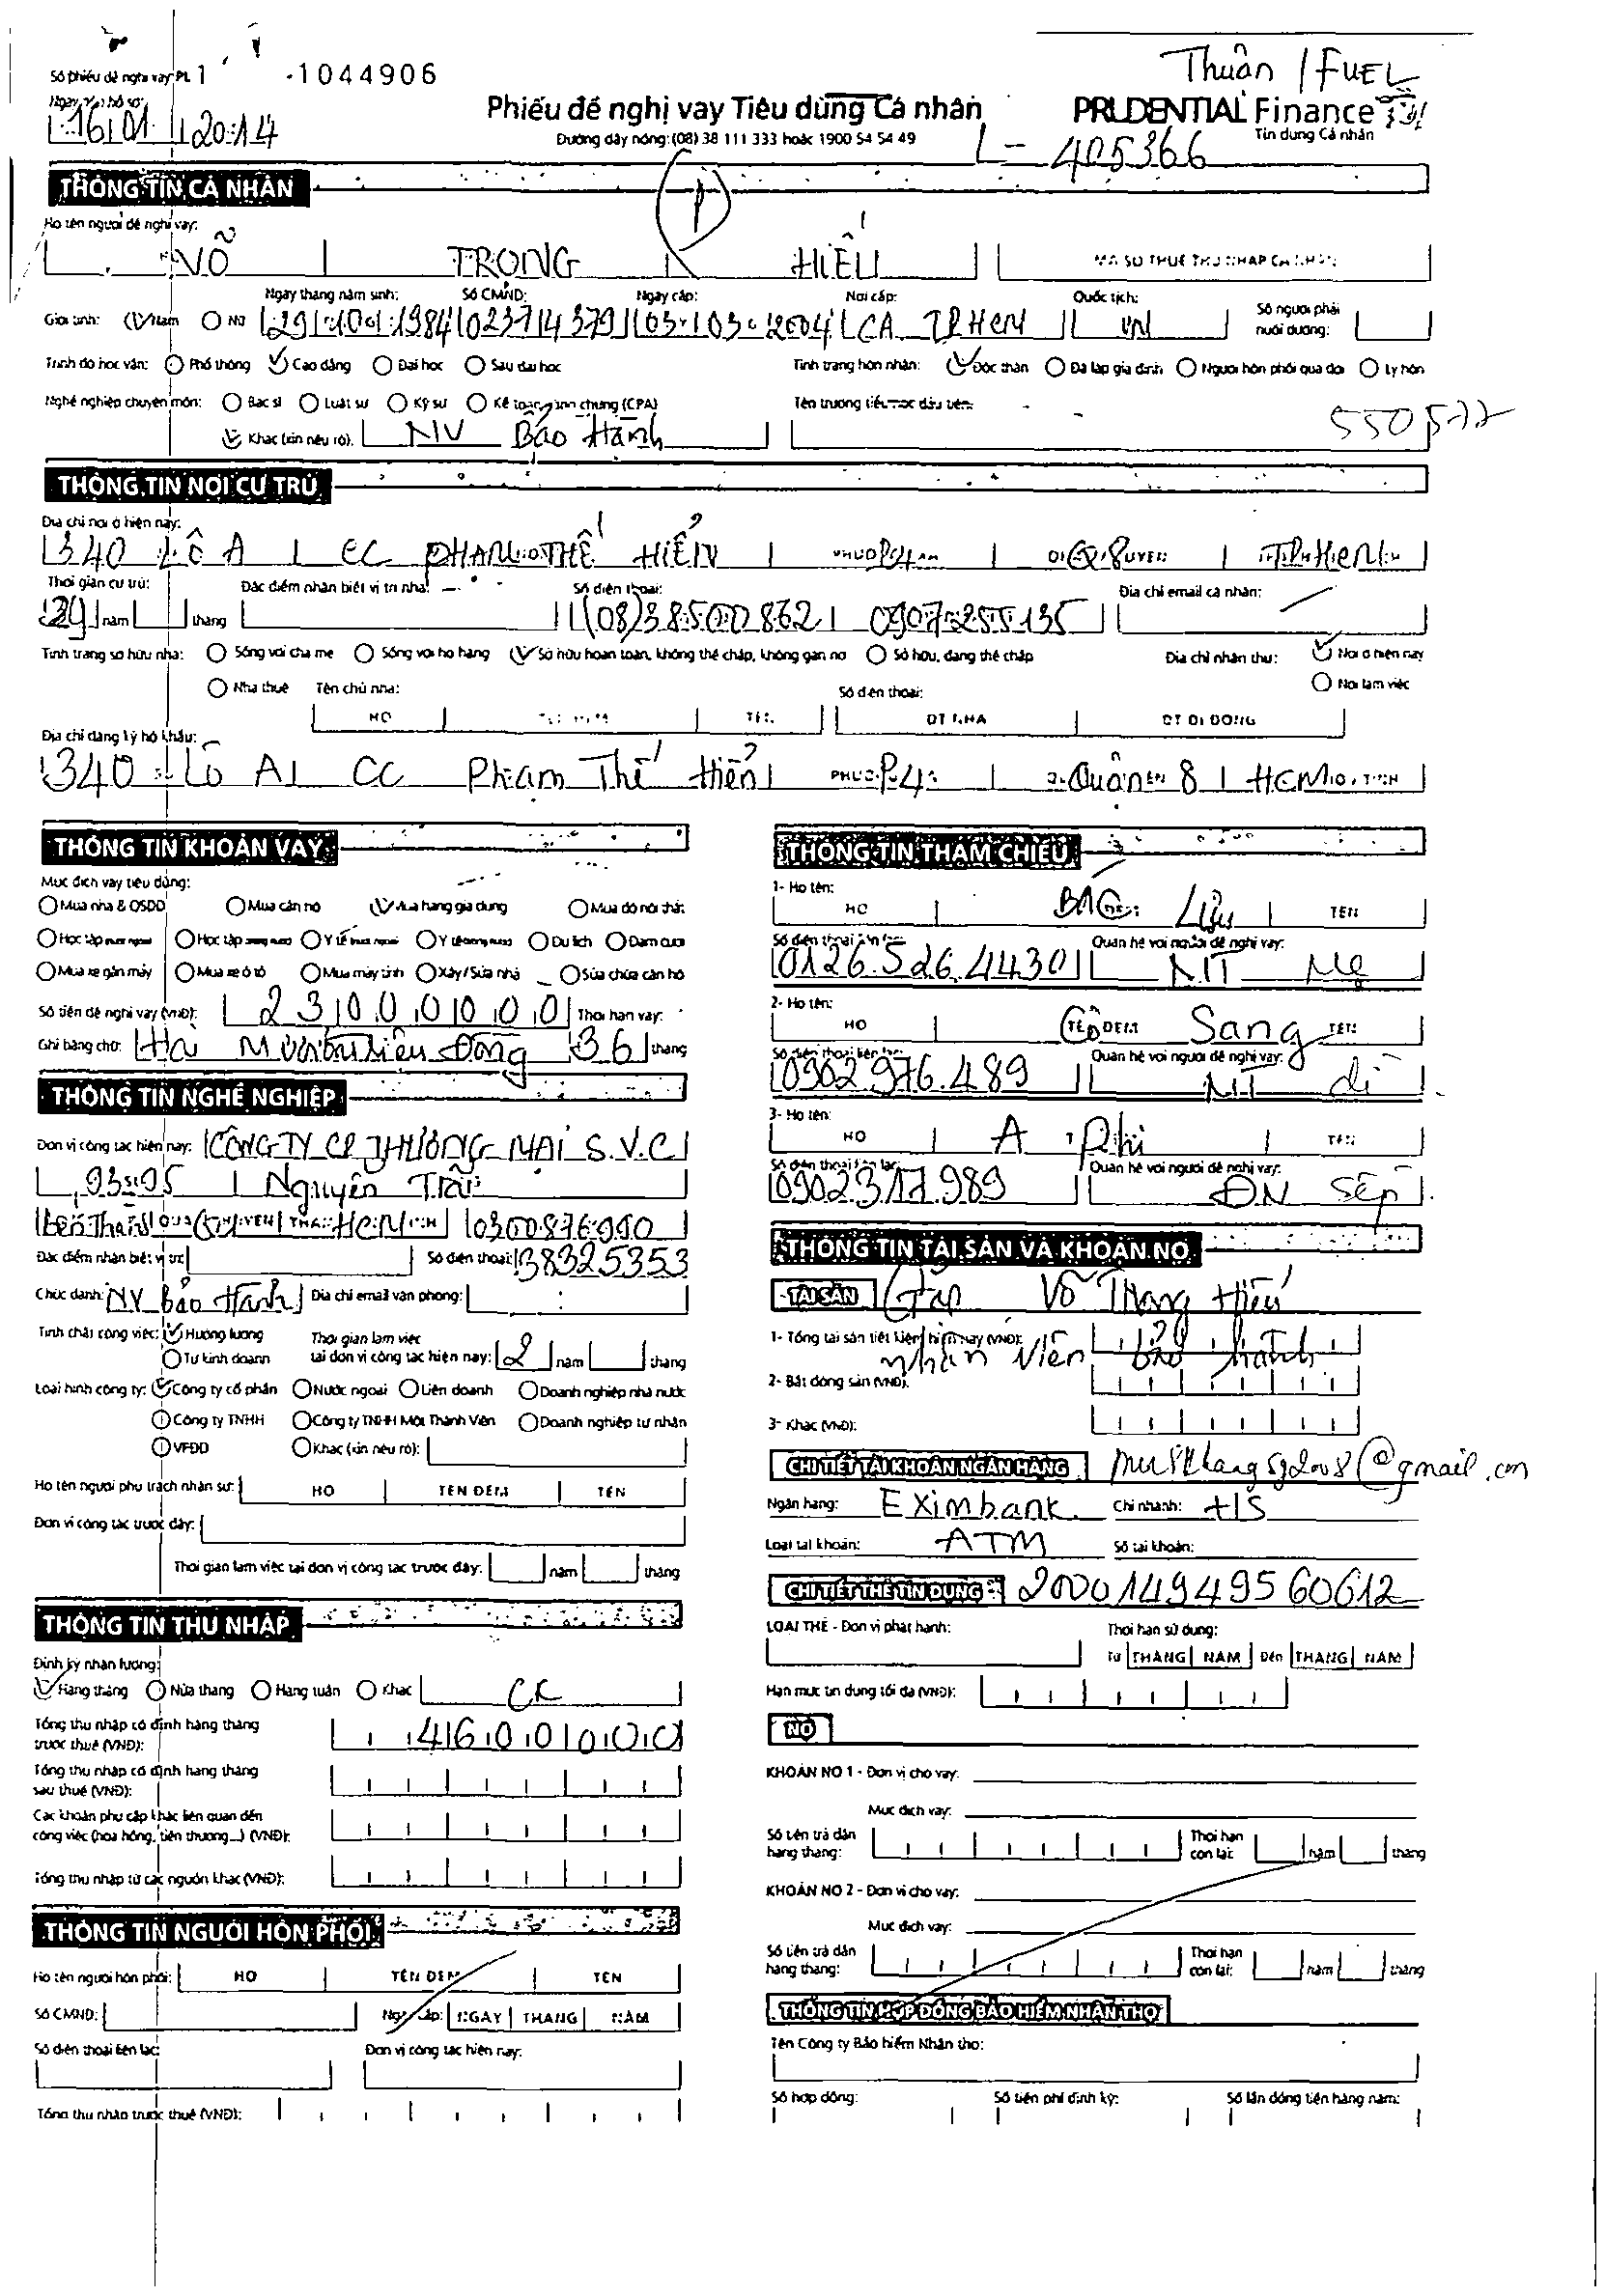 Thuân / FUEL
Số phiếu đề nghị vay: PL 1 1044906
Ngày nộp hồ sơ:
16 01 2014
Phiếu đề nghị vay Tiêu dùng Cá nhân
PRUDENTIAL Finance
Tín dụng Cá nhân
Đường dây nóng: (08) 38 111 333 hoặc 1900 54 54 49
L - 405366
THÔNG TIN CÁ NHÂN
Họ tên người đề nghị vay:
VÕ TRỌNG HIẾU MÃ SỐ THUẾ THU NHẬP CÁ NHÂN
Ngày tháng năm sinh: Số CMND: Ngày cấp: Nơi cấp: Quốc tịch: Số người phải nuôi dưỡng:
Giới tính: Nam Nữ 29 10 1984 023714379 03 03 2004 CA TPHCM VN
Trình độ học vấn: Phổ thông Cao đẳng Đại học Sau đại học Tình trạng hôn nhân: Độc thân Đã lập gia đình Người hôn phối qua đời Ly hôn
Nghề nghiệp chuyên môn: Bác sĩ Luật sư Kỹ sư Kế toán công chứng (CPA) Tên trường tiểu học đầu tiên:
Khác (xin nêu rõ): NV Bảo Hành
THÔNG TIN NƠI CƯ TRÚ
Địa chỉ nơi ở hiện nay:
340 LÔ A CC PHẠM THẾ HIỂN P4 Q8 TPHCM
Thời gian cư trú: Đặc điểm nhận biết vị trí nhà: Số điện thoại: Địa chỉ email cá nhân:
năm tháng (08)38500862 0907255135
Tình trạng sở hữu nhà: Sống với cha mẹ Sống với họ hàng Sở hữu hoàn toàn, không thế chấp, không gán nợ Sở hữu, đang thế chấp Địa chỉ nhận thư: Nơi ở hiện nay
Nhà thuê Tên chủ nhà: Số điện thoại: Nơi làm việc
HỌ TÊN ĐỆM TÊN ĐT NHÀ ĐT DI ĐỘNG
Địa chỉ đăng ký hộ khẩu:
340 Lô A CC Phạm Thế Hiển P4 Quận 8 HCM
THÔNG TIN KHOẢN VAY
Mục đích vay tiêu dùng:
Mua nhà & QSDĐ Mua căn hộ Mua hàng gia dụng Mua đồ nội thất
Học tập nước ngoài Học tập trong nước Y tế nước ngoài Y tế trong nước Du lịch Đám cưới
Mua xe gắn máy Mua xe ô tô Mua máy tính Xây/Sửa nhà Sửa chữa căn hộ
Số tiền đề nghị vay (VNĐ): 23000000 Thời hạn vay:
Ghi bằng chữ: 36 tháng
THÔNG TIN NGHỀ NGHIỆP
Đơn vị công tác hiện nay: CÔNG TY CP THƯƠNG MẠI S.V.C
Nguyễn Trãi
Bến Thành HCM 0300876990
Đặc điểm nhận biết vị trí: Số điện thoại: 38325353
Chức danh: NV Bảo Hành Địa chỉ email văn phòng:
Tính chất công việc: Hưởng lương Thời gian làm việc tại đơn vị công tác hiện nay: 2 năm tháng
Tự kinh doanh
Loại hình công ty: Công ty cổ phần Nước ngoài Liên doanh Doanh nghiệp nhà nước
Công ty TNHH Công ty TNHH Một Thành Viên Doanh nghiệp tư nhân
VPĐD Khác (xin nêu rõ):
Họ tên người phụ trách nhân sự: HỌ TÊN ĐỆM TÊN
Đơn vị công tác trước đây:
Thời gian làm việc tại đơn vị công tác trước đây: năm tháng
THÔNG TIN THU NHẬP
Định kỳ nhận lương:
Hàng tháng Nửa tháng Hàng tuần Khác CK
Tổng thu nhập cố định hàng tháng trước thuế (VNĐ): 4600000
Tổng thu nhập cố định hàng tháng sau thuế (VNĐ):
Các khoản phụ cấp khác liên quan đến công việc (hoa hồng, tiền thưởng...) (VNĐ):
Tổng thu nhập từ các nguồn khác (VNĐ):
THÔNG TIN NGƯỜI HÔN PHỐI
Họ tên người hôn phối: HỌ TÊN ĐỆM TÊN
Số CMND: Ngày cấp: NGÀY THÁNG NĂM
Số điện thoại liên lạc: Đơn vị công tác hiện nay:
Tổng thu nhập trước thuế (VNĐ):
THÔNG TIN THAM CHIẾU
1- Họ tên: HỌ TÊN
Số điện thoại liên lạc: Quan hệ với người đề nghị vay:
0126.526.4430 NT Mẹ
2- Họ tên: HỌ Cô Sang TÊN
Số điện thoại liên lạc: Quan hệ với người đề nghị vay:
0902976.489 NT dì
3- Họ tên: HỌ A Phi TÊN
Số điện thoại liên lạc: Quan hệ với người đề nghị vay:
0902311989 ĐN Sếp
THÔNG TIN TÀI SẢN VÀ KHOẢN NỢ
TÀI SẢN Gặp Võ Trọng Hiếu
1- Tổng tài sản tiết kiệm hiện nay (VNĐ):
nhân viên bảo hành
2- Bất động sản (VNĐ):
3- Khác (VNĐ):
CHI TIẾT TÀI KHOẢN NGÂN HÀNG @gmail.com
Ngân hàng: EXimbank Chi nhánh: HS
Loại tài khoản: ATM Số tài khoản:
CHI TIẾT THẺ TÍN DỤNG 200014949560612
LOẠI THẺ - Đơn vị phát hành: Thời hạn sử dụng:
Từ THÁNG NĂM Đến THÁNG NĂM
Hạn mức tín dụng tối đa (VNĐ):
NỢ
KHOẢN NỢ 1 - Đơn vị cho vay:
Mục đích vay:
Số tiền trả dần hàng tháng: Thời hạn còn lại: năm tháng
KHOẢN NỢ 2 - Đơn vị cho vay:
Mục đích vay:
Số tiền trả dần hàng tháng: Thời hạn còn lại: năm tháng
THÔNG TIN HỢP ĐỒNG BẢO HIỂM NHÂN THỌ
Tên Công ty Bảo hiểm Nhân thọ:
Số hợp đồng: Số tiền phí định kỳ: Số lần đóng tiền hàng năm: